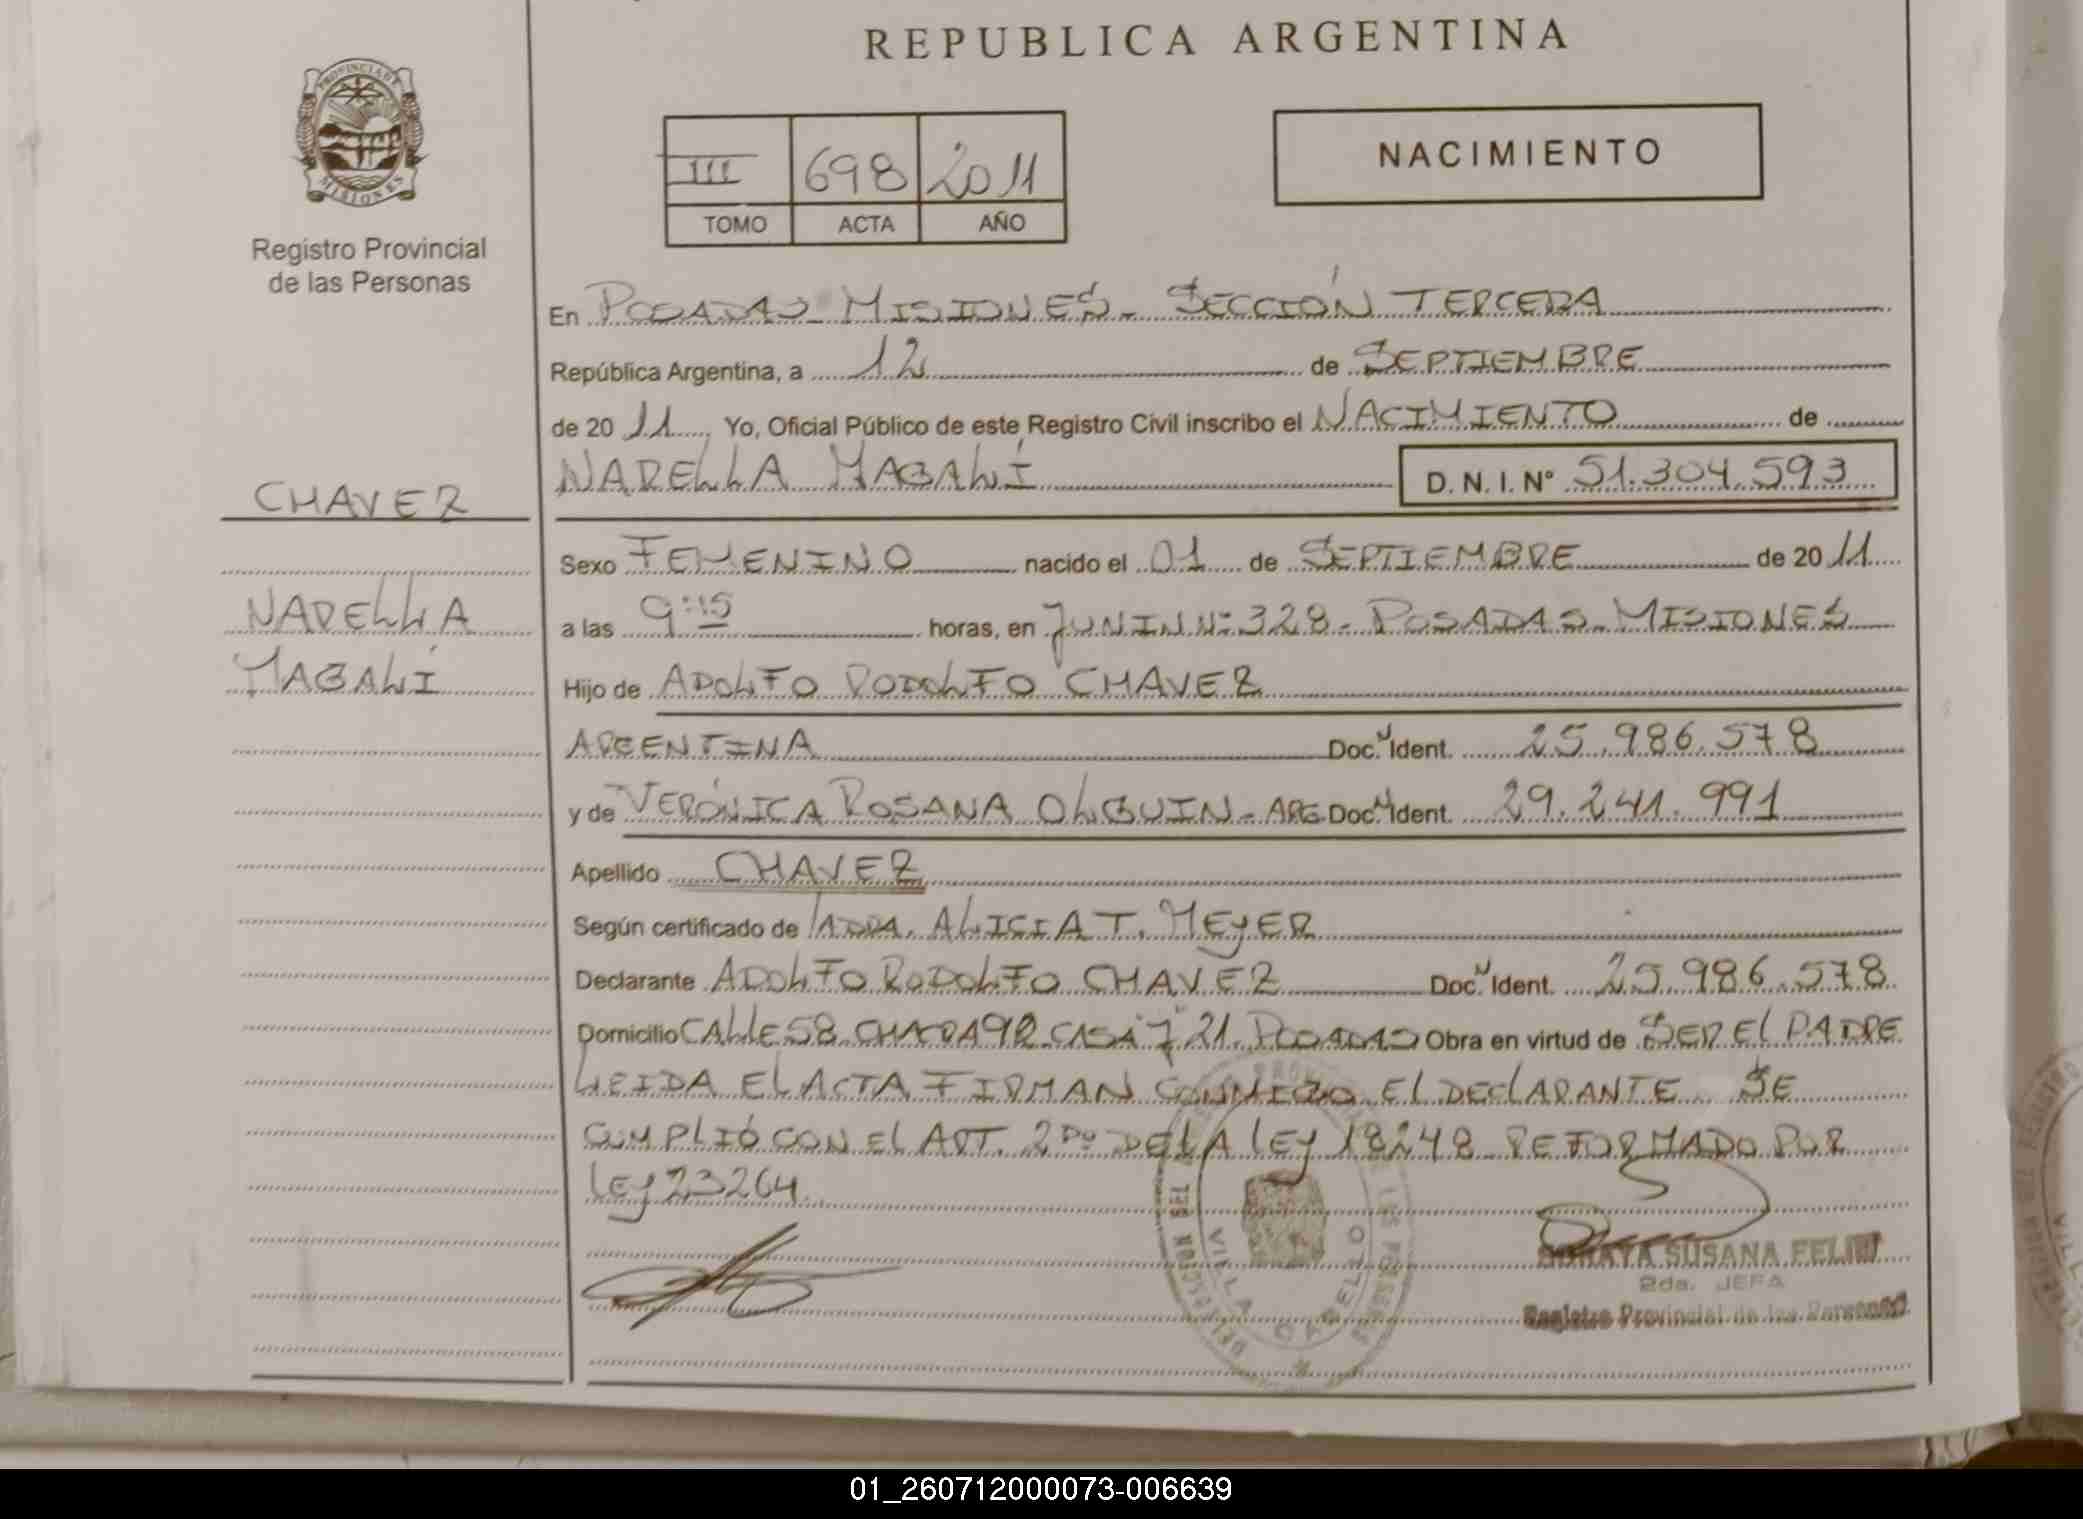 REPUBLICA ARGENTINA
PROVINCIA DE MISIONES
Registro Provincial
de las Personas
III 698 2011
TOMO ACTA AÑO
NACIMIENTO
En POSADAS - MISIONES - SECCIÓN TERCERA
República Argentina, a 12 de SEPTIEMBRE
de 20 11. Yo, Oficial Público de este Registro Civil inscribo el NACIMIENTO de
NARELLA MAGALÍ D. N. I. N° 51.304.593
CHAVEZ
NARELLA
MAGALÍ
Sexo FEMENINO nacido el 01 de SEPTIEMBRE de 20 11
a las 9:15 horas, en JUNIN N° 328 - POSADAS - MISIONES
Hijo de ADOLFO RODOLFO CHAVEZ
ARGENTINA Doc. N Ident. 25.986.578
y de VERÓNICA ROSANA OLGUIN - ARG Doc. N Ident. 29.241.991
Apellido CHAVEZ
Según certificado de ALICIA T. MEYER
Declarante ADOLFO RODOLFO CHAVEZ Doc. N Ident. 25.986.578
Domicilio CALLE 58 CHACRA 92 CASA 7 21. POSADAS Obra en virtud de SER EL PADRE
LEIDA EL ACTA FIRMAN CONMIGO EL DECLARANTE SE
CUMPLIÓ CON EL ART. 2DO DE LA LEY 18248 REFORMADO POR
LEY 23264
VILLA CABELLO
SORAYA SUSANA
2da. JEFA
Registro Provincial de las Personas
01_260712000073-006639